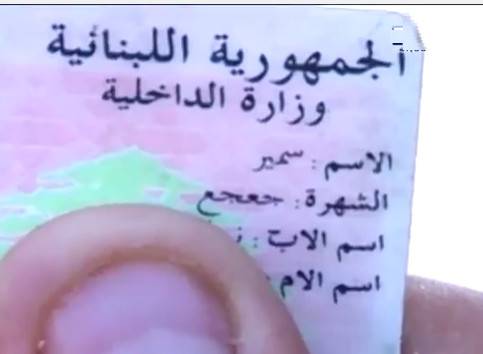 الجمهورية اللبنانية
وزارة الداخلية
الاسم : سمير
الشهرة : جعجع
اسم الاب :
اسم الام